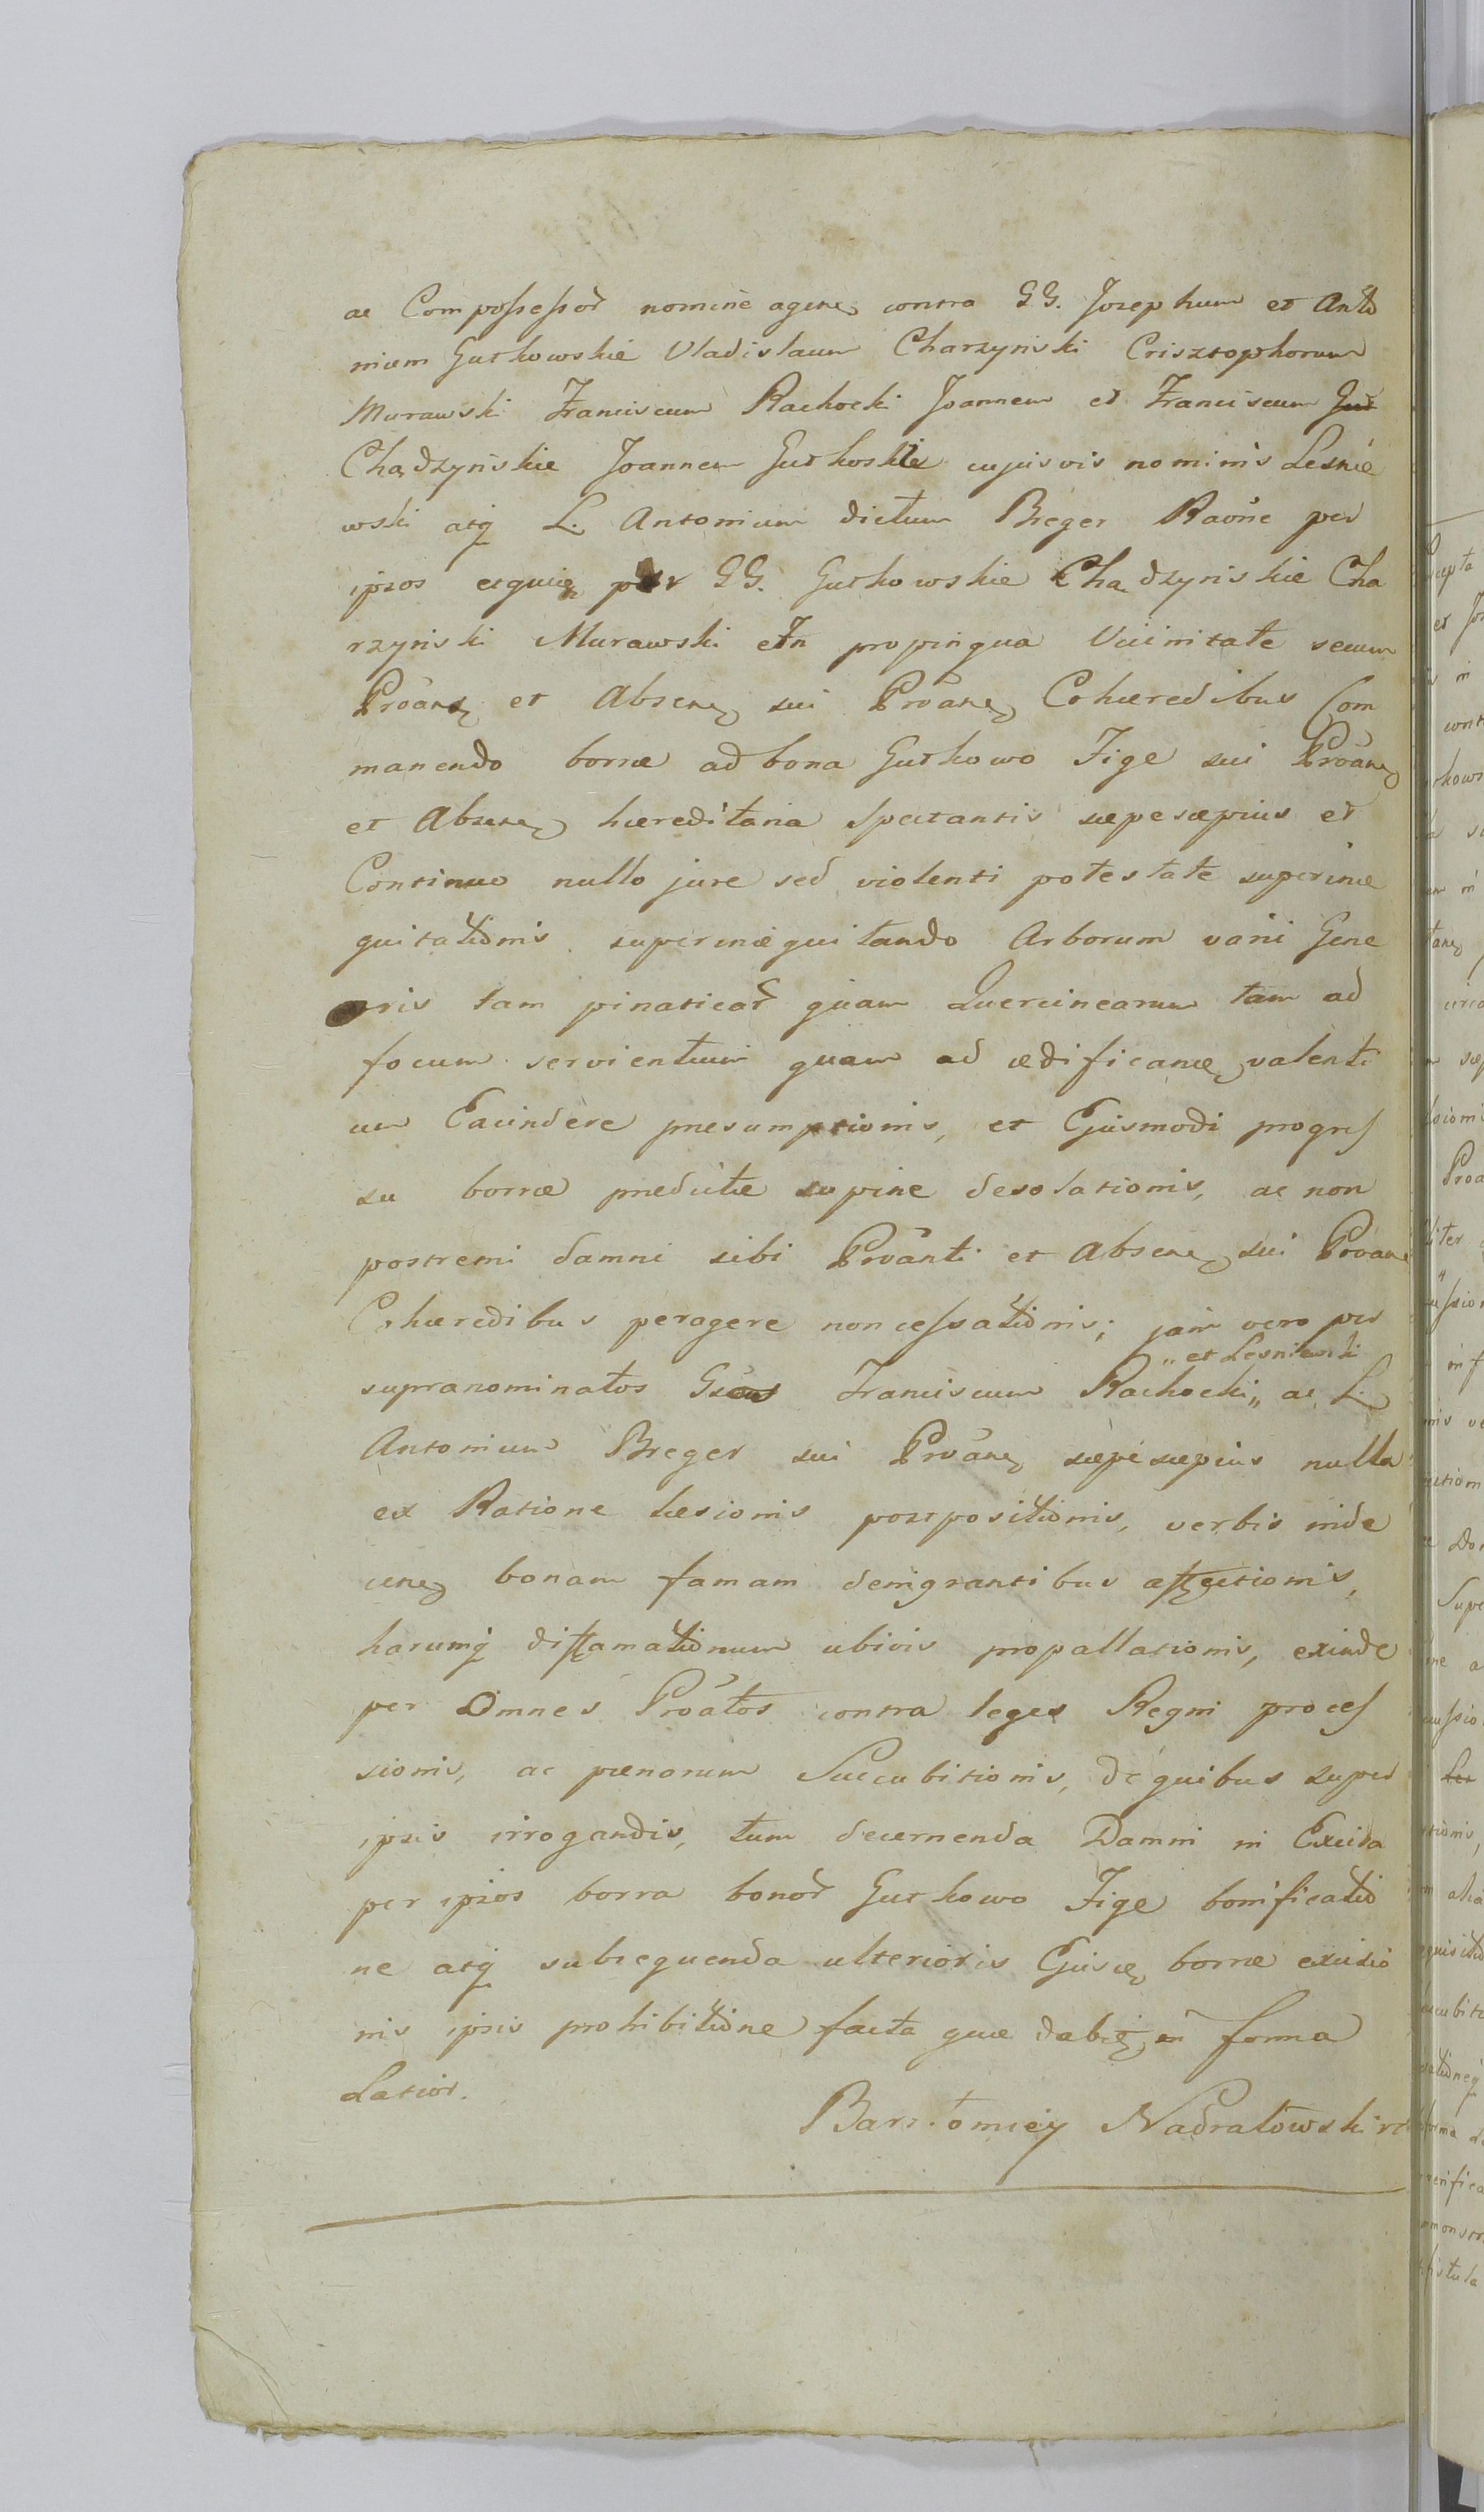 ac Compossessor nomine agens contra GG. Josephum et Anto
nium Gutkowskie Vladislaum Charzynski Crisztophorum
Murawski Franciscum Rachocki Joannem et Franciscum Gut
Chądzynskie Joannem Gutkoski cujusvis nominis Lesnie
wski atq L. Antonium dictum Breger Raone per
ipsos per GG. Gutkowskie Chądzynskie Cha
rzynski Murawski et In propinqua Vicinitate secum
Proante et Absen sui Proan Cohæredibus Com
manendo borræ ad bona Gutkowo Fige sui Proan
et Absen hæreditaria Spectantis sæpesæpius et
Continuo nullo jure sed violenti potestate superinæ
quitationis superinæquitando Arborum varii Gene
ris tam pinaticar quam Quercinearum tam ad
focum servientium quam ad ædifican valenti
um Excindere presumptionis, et Ejusmodi progres
su borræ predictæ supine desolationis, ac non
postremi damni sibi Proanti et Absen sui Proan
Cohæredibus peragere non cessationis; jam vero per
„ et Lesniewski
supranominatos Franciscum Rachocki „ ac L.
Antonium Breger sui Proan sæpesæpius nulla
ex Ratione læsionis postpositionis, verbis inde
cen bonam famam denigrantibus affectionis,
harumq diffamationum ubivis propallationis, exinde
per Omnes Proatos contra leges Regni proces
sionis, ac pænarum Succubitionis, de quibus super
ipsis irrogandis, tum decernenda Damni in Excisa
per ipsos borra bonor Gutkowo Fige bonificatio
ne atq subsequenda ulterioris Ejusd borræ excisio
nis ipsis prohibitione facta quæ dab in forma
Latior.
Bartłomiey Nadratowski